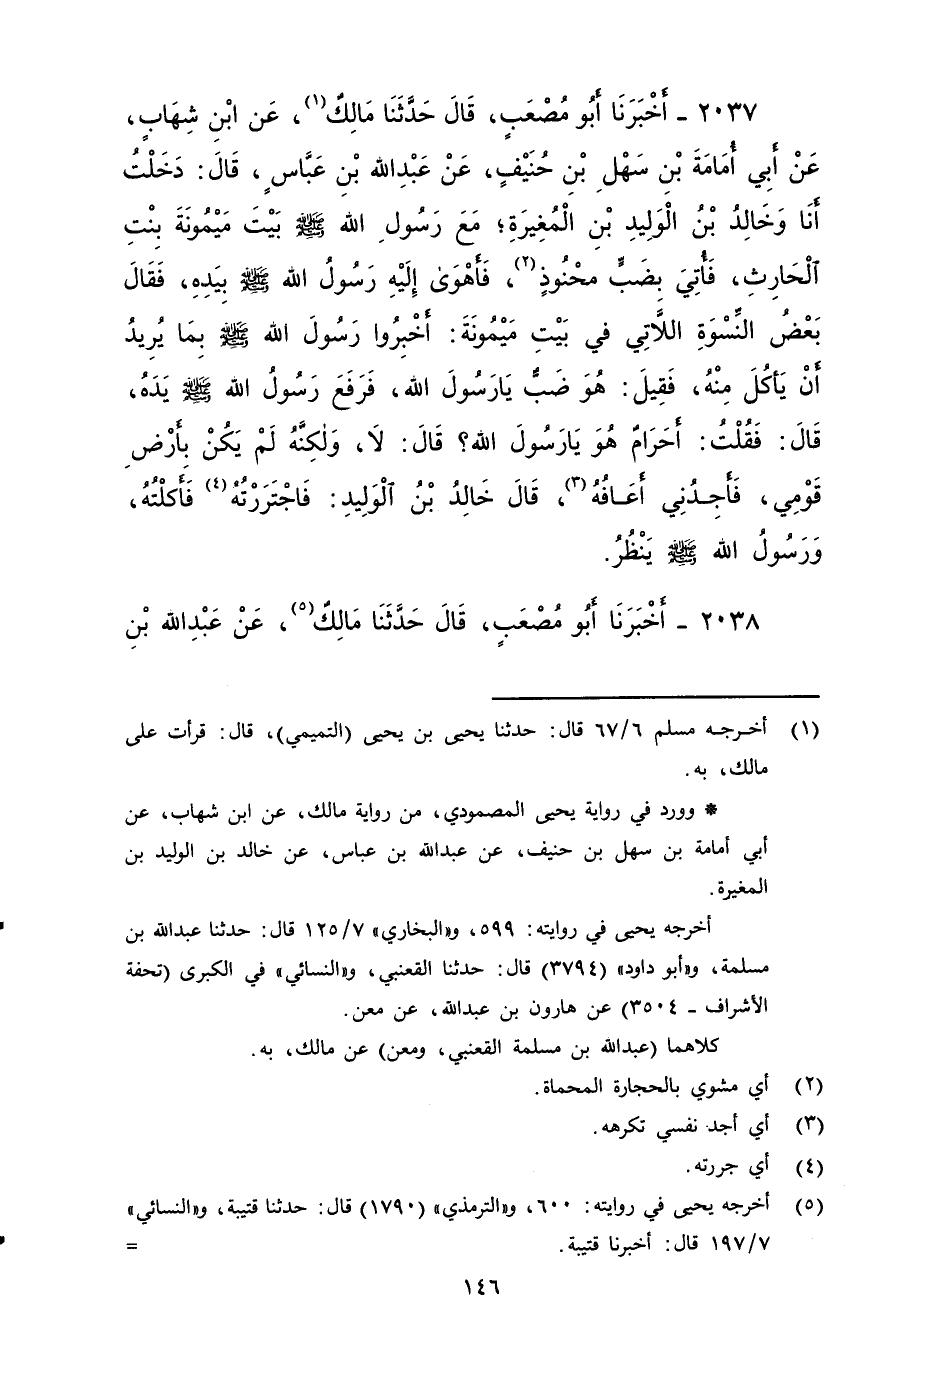 ٢٠٣٧ ـ أَخْبَرَنَا أَبُو مُصْعَبٍ، قَالَ حَدَّثَنَا مَالِكٌ(١)، عَن ابْنِ شِهَابٍ،
عَنْ أَبِي أُمَامَةَ بْنِ سَهْلِ بْنِ حُنَيْفٍ، عَنْ عَبْدِالله بْنِ عَبَّاسٍ، قَالَ: دَخَلْتُ
أَنَا وَخَالِدُ بْنُ الْوَلِيدِ بْنِ الْمُغِيرَةِ؛ مَعَ رَسُولِ الله ﷺ بَيْتَ مَيْمُونَةَ بِنْتِ
اَلْحَارِثِ، فَأُتِيَ بِضَبٍّ محْنُوذٍ(٢)، فَأَهْوَىٰ إِلَيْهِ رَسُولُ الله ﷺ بِيَدِهِ، فَقَالَ
بَعْضُ النِّسْوَةِ اللاَّتِي في بَيْتِ مَيْمُونَةَ: أَخْبِرُوا رَسُولَ الله ﷺ بِمَا يُرِيدُ
أَنْ يَأكُلَ مِنْهُ، فَقِيلَ: هُوَ ضَبٌّ يَارَسُولَ الله، فَرَفَعَ رَسُولُ الله ﷺ يَدَهُ،
قَالَ: فَقُلْتُ: أَحَرامٌ هُوَ يَارَسُولَ الله؟ قَالَ: لَا، وَلٰكِنَّهُ لَمْ يَكُنْ بِأَرْضِ
قَوْمِي، فَأَجِدُنِي أَعَافُهُ(٣)، قَالَ خَالِدُ بْنُ اَلْوَلِيدِ: فَاجْتَرَرْتُهُ(٤) فَأَكَلْتُهُ،
وَرَسُولُ الله ﷺ يَنْظُرُ.
٢٠٣٨ ـ أَخْبَرَنَا أَبُو مُصْعَبٍ، قَالَ حَدَّثَنَا مَالِكٌ(٥)، عَنْ عَبْدِالله بْنِ
(١) أخرجه مسلم ٦٧/٦ قال: حدثنا يحيى بن يحيى (التميمي)، قال: قرأت على
مالك، به.
* وورد في رواية يحيى المصمودي، من رواية مالك، عن ابن شهاب، عن
أبي أمامة بن سهل بن حنيف، عن عبدالله بن عباس، عن خالد بن الوليد بن
المغيرة.
أخرجه يحيى في روايته: ٥٩٩، و«البخاري» ١٢٥/٧ قال: حدثنا عبدالله بن
مسلمة، و«أبو داود» (٣٧٩٤) قال: حدثنا القعنبي، و«النسائي» في الكبرى (تحفة
الأشراف ـ ٣٥٠٤) عن هارون بن عبدالله، عن معن.
كلاهما (عبدالله بن مسلمة القعنبي، ومعن) عن مالك، به.
(٢) أي مشوي بالحجارة المحماة.
(٣) أي أجد نفسي تكرهه.
(٤) أي جررته.
(٥) أخرجه يحيى في روايته: ٦٠٠، و«الترمذي» (١٧٩٠) قال: حدثنا قتيبة، و«النسائي»
١٩٧/٧ قال: أخبرنا قتيبة. =
١٤٦